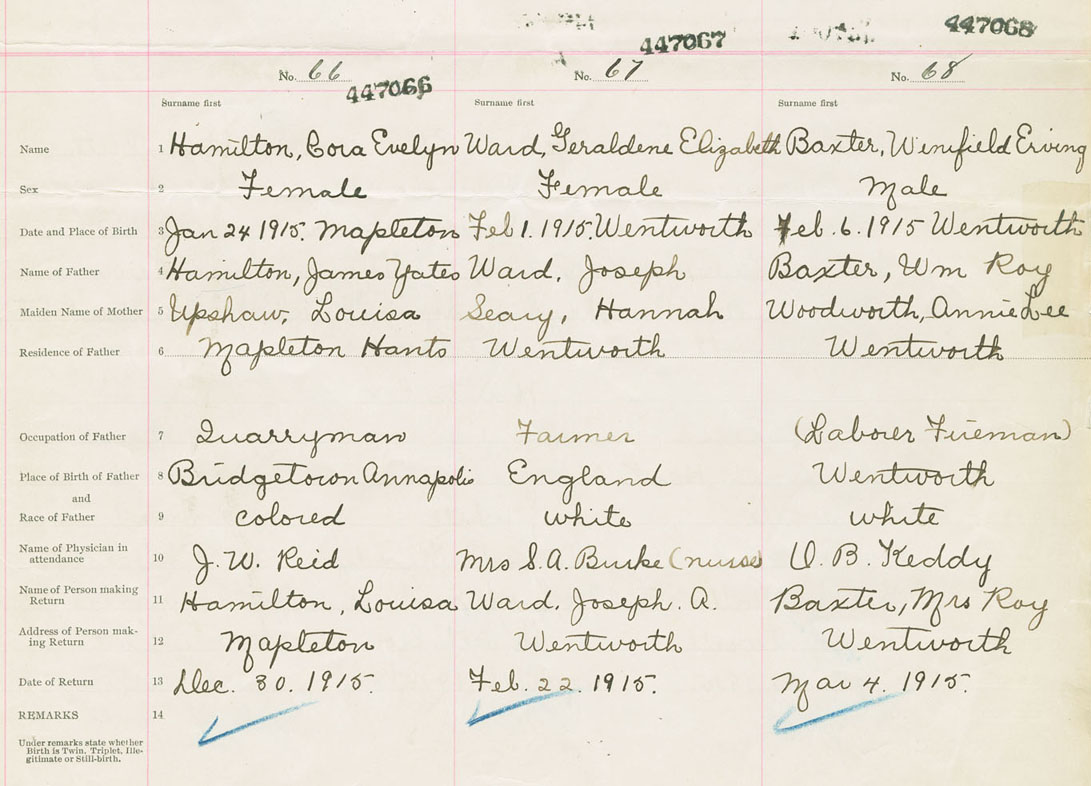 447067 447068
No. 66 No. 67 No. 68
447066
Surname first Surname first Surname first
Name 1 Hamilton, Cora Evelyn Ward, Geraldene Elizabeth Baxter, Winifield Erving
Sex 2 Female Female Male
Date and Place of Birth 3 Jan 24 1915. Mapleton Feb 1. 1915. Wentworth Feb. 6. 1915 Wentworth
Name of Father 4 Hamilton, James Yates Ward, Joseph Baxter, Wm Roy
Maiden Name of Mother 5 Upshaw, Louisa Seary, Hannah Woodworth, Annie Lee
Residence of Father 6 Mapleton Hants Wentworth Wentworth
Occupation of Father 7 Quarryman Farmer (Laborer Fireman)
Place of Birth of Father 8 Bridgetown Annapolis England Wentworth
and
Race of Father 9 colored white white
Name of Physician in
attendance 10 J. W. Reid Mrs S. A. Burke (nurse) O. B. Keddy
Name of Person making
Return 11 Hamilton, Louisa Ward. Joseph. A. Baxter, Mrs Roy
Address of Person mak-
ing Return 12 Mapleton Wentworth Wentworth
Date of Return 13 Dec. 30. 1915. Feb. 22. 1915. Mar 4. 1915.
REMARKS 14
Under remarks state whether
Birth is Twin, Triplet, Ille-
gitimate or Still-birth.